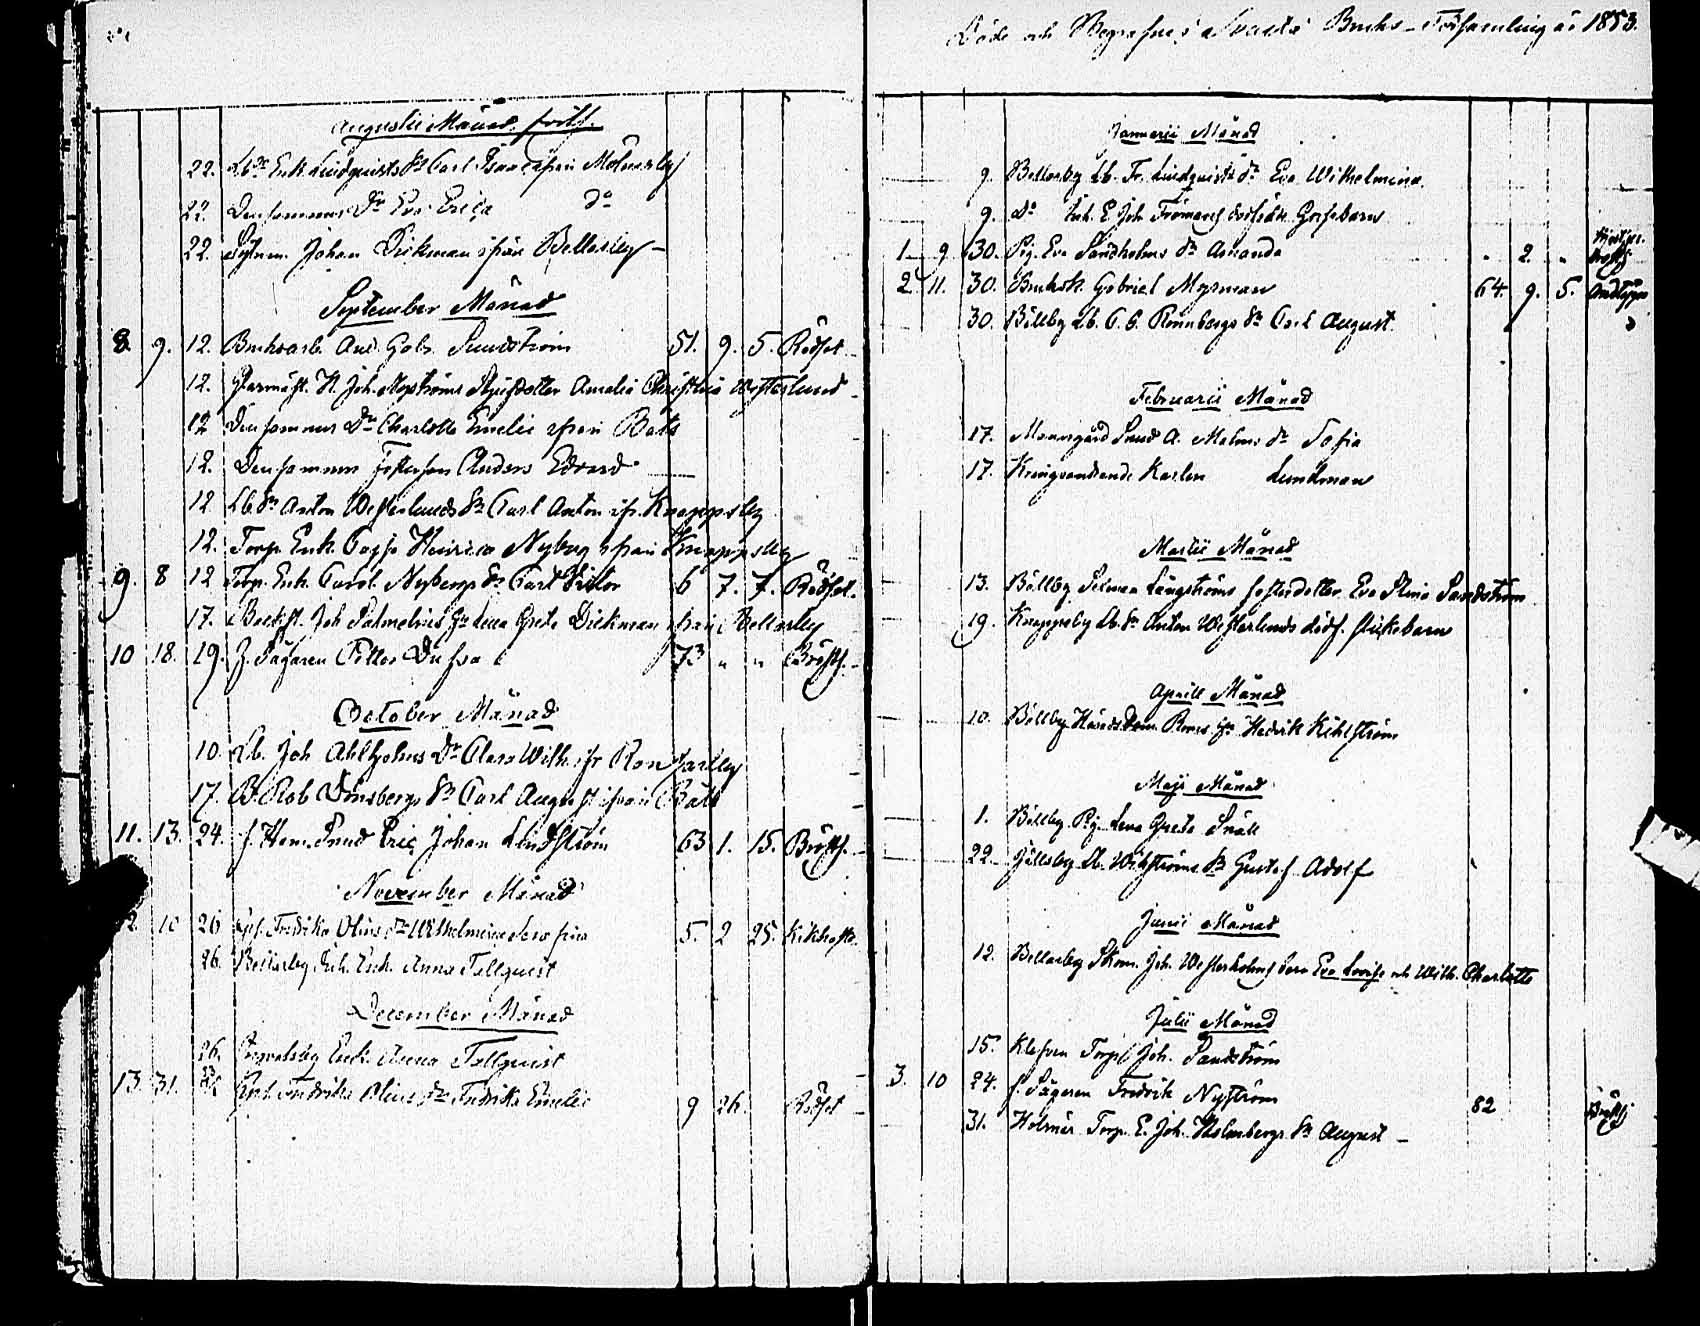 Augustii Månad, forts.
22. Enk. Lindqvists Sn Carl Isac ifrån Mölnarby
22. Densammes Dr Eva Erica Do
22. Johan Dickman ifrån Bellarby
September Månad
8. 9. 12. Bruksarb. And. Gabr. Sundström 51. 9. 5. Rödsot
12. H. Joh. Styfdotter Amalia Christina Westerlund
12 Densammes Dr Charlotta Emelie ifrån
12. Densammes Fosterson Anders Edvard
12 Lb Sn Anton Westerlunds Sn Carl Anton ifr. Knappsby
12. Torp. Enk. Cajsa Henrica Nyberg ifrån Knappsby
9. 8 12 Torp. Enk. Carol. Nybergs Sn Carl Victor 6 7. 7. Rödsot.
17. Joh. Hu Lena Greta Dickman ifrån Bellarby
10 18. 19. f. Sågaren Petter Dufva 73 " " Bröstf.
October Månad
10. Lb. Joh. Ahlholms Dr Clara Wilh. ifr.
17. B. Rob. Sn Carl August ifrån
11. 13. 24. f. Hem. Smed Eric Johan Lindström 63 1. 15. Bröstf.
November Månad
10 26 Fredrika Olins Dr Wilhelmina Josefina 5. 2 25. Kikhosta.
26. Bellarby Inh. Enk. Anna Tallquist
December Månad
26. Enk. Anna Tallquist
13. 31. Fredrika Olins Dr Fredrika Emelie 9 26. Rödsot
Döde och Begrafne i Svarta Bruks-Församling år 1853.
Januarii Månad
9. Bellarby Lb. Fr. Lindqvists Dr Eva Wilhelmina.
9. Do Inh. E. Joh. Frömans dödfödt Gossebarn
1. 9 30. Pig. Eva Sandholms Dr Amanda " 2 "
2. 11. 30. Gabriel Myrman 64. 9. 5. Andtäppa
30. Bällby Lb. C. G. Rönnbergs Sn Carl August.
Februarii Månad
17. Smed A. Malms Dr Sofia
17. Kringvandrande Karlen Lundman
Martii Månad
13. Bällby Långströms fosterdotter Eva Stina Sandström
19. Knappsby Lb. Sn Anton Westerlunds dödf. flickebarn
Aprill Månad
10. Bällby Hu Hedvik Kihlström
Maji Månad
1. Bällby Pig. Lena Greta Snäll
22. Lb. Wikströms Sn Gustaf Adolf
Junii Månad
12. Bellarby Joh. Westerholms Eva Lovisa och Wilh. Charlotta
Julii Månad
15. Torp. Joh. Sandström
3. 10 24. f. Sågaren Fredrik Nyström 82 Bröstf.
31. Holmis Torp. E. Joh. Holmbergs Sn August